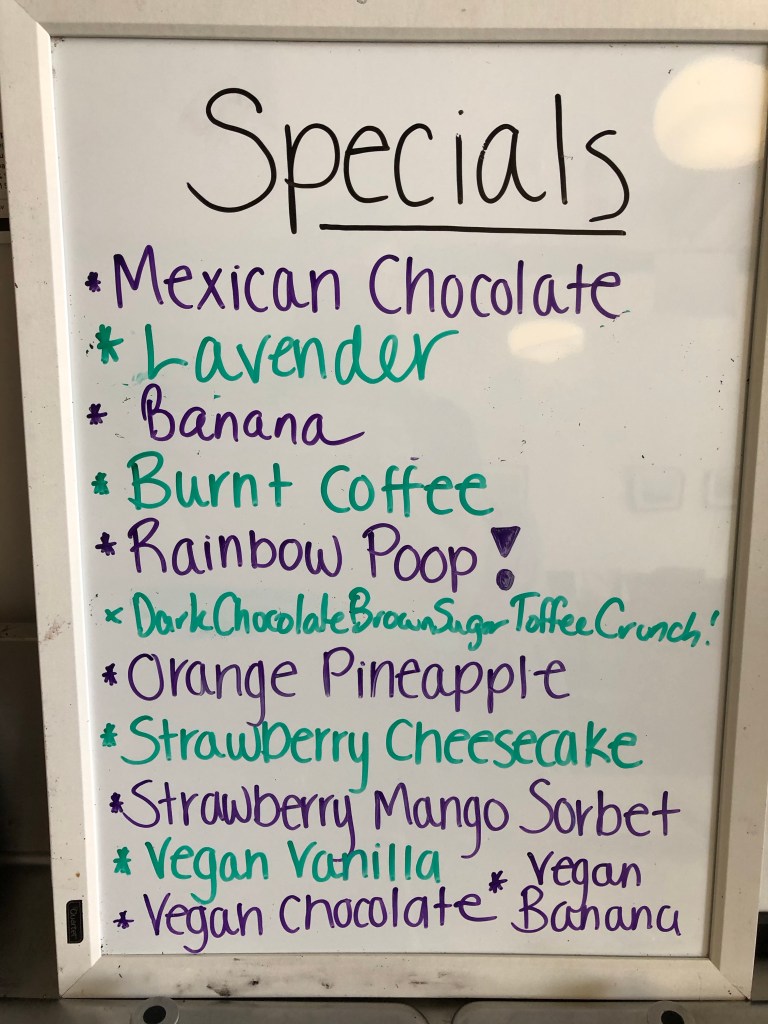 Specials
* Mexican Chocolate
* Lavender
* Banana
* Burnt Coffee
* Rainbow Poop!
* Dark Chocolate Brown Sugar Toffee Crunch!
* Orange Pineapple
* Strawberry Cheesecake
* Strawberry Mango Sorbet
* Vegan Vanilla
* Vegan Chocolate
* Vegan
Banana
Quartet